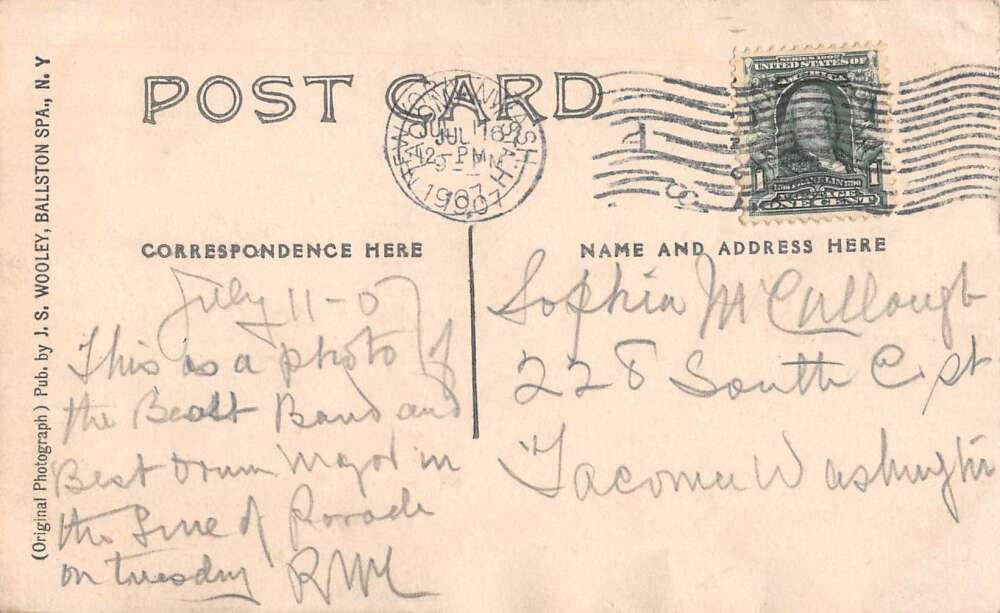 POST CARD
(Original Photograph) Pub. by J. S. WOOLEY, BALLSTON SPA., N. Y
JUL
12 - PM
1907
SERIES 1902
UNITED STATES OF
AMERICA
FRANKLIN
1 POSTAGE 1
ONE CENT
CORRESPONDENCE HERE
July 11-07
This is a photo of
the Best Band and
Best Drum Major in
the Line of Parade
on tuesday
NAME AND ADDRESS HERE
Sophia McCullough
228 South C st
Tacoma Washington